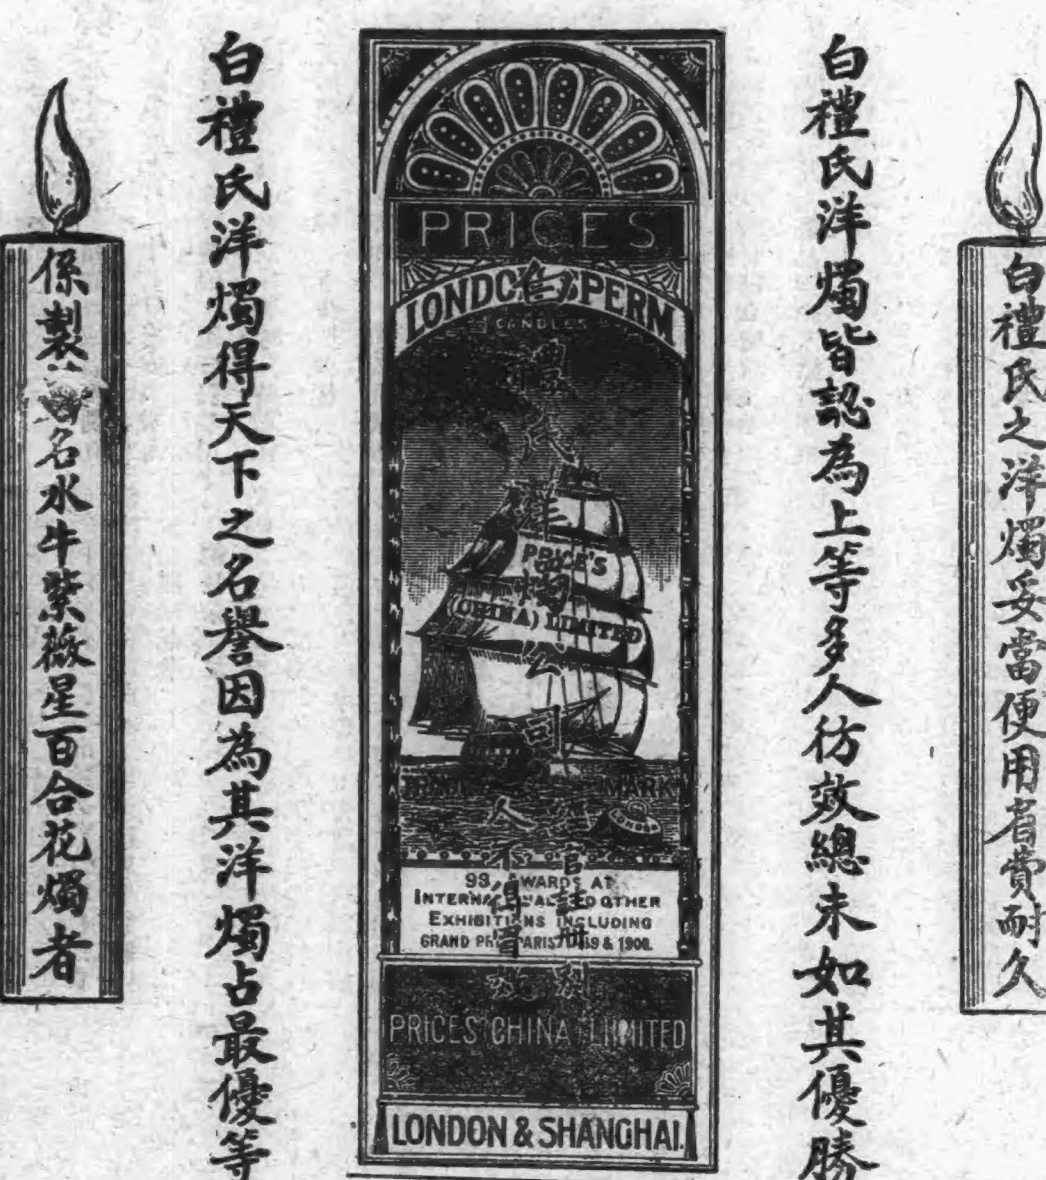 白禮氏之洋燭妥當便用省費耐久
白禮氏洋燭皆認為上等多人彷效總未如其優勝
PRICES
LONDON SPERM
CANDLES
白禮氏洋燭公司
PRICE'S
(CHINA) LIMITED
TRADE MARK
LONDON
經官註冊別
人不得冒效
93 AWARDS AT
INTERNATIONAL AND OTHER
EXHIBITIONS INCLUDING
GRAND PRIX PARIS 1889 & 1900.
PRICES CHINA LIMITED
LONDON & SHANGHAI.
白禮氏洋燭得天下之名譽因為其洋燭占最優等
係製 名水牛紫薇星百合花燭者